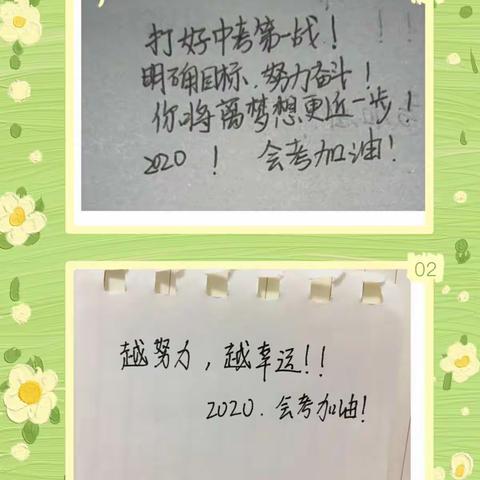 打好中考第一战!
明确目标,努力奋斗!
你将离梦想更近一步!
2020! 会考加油!
02
越努力,越幸运!!
2020.会考加油!